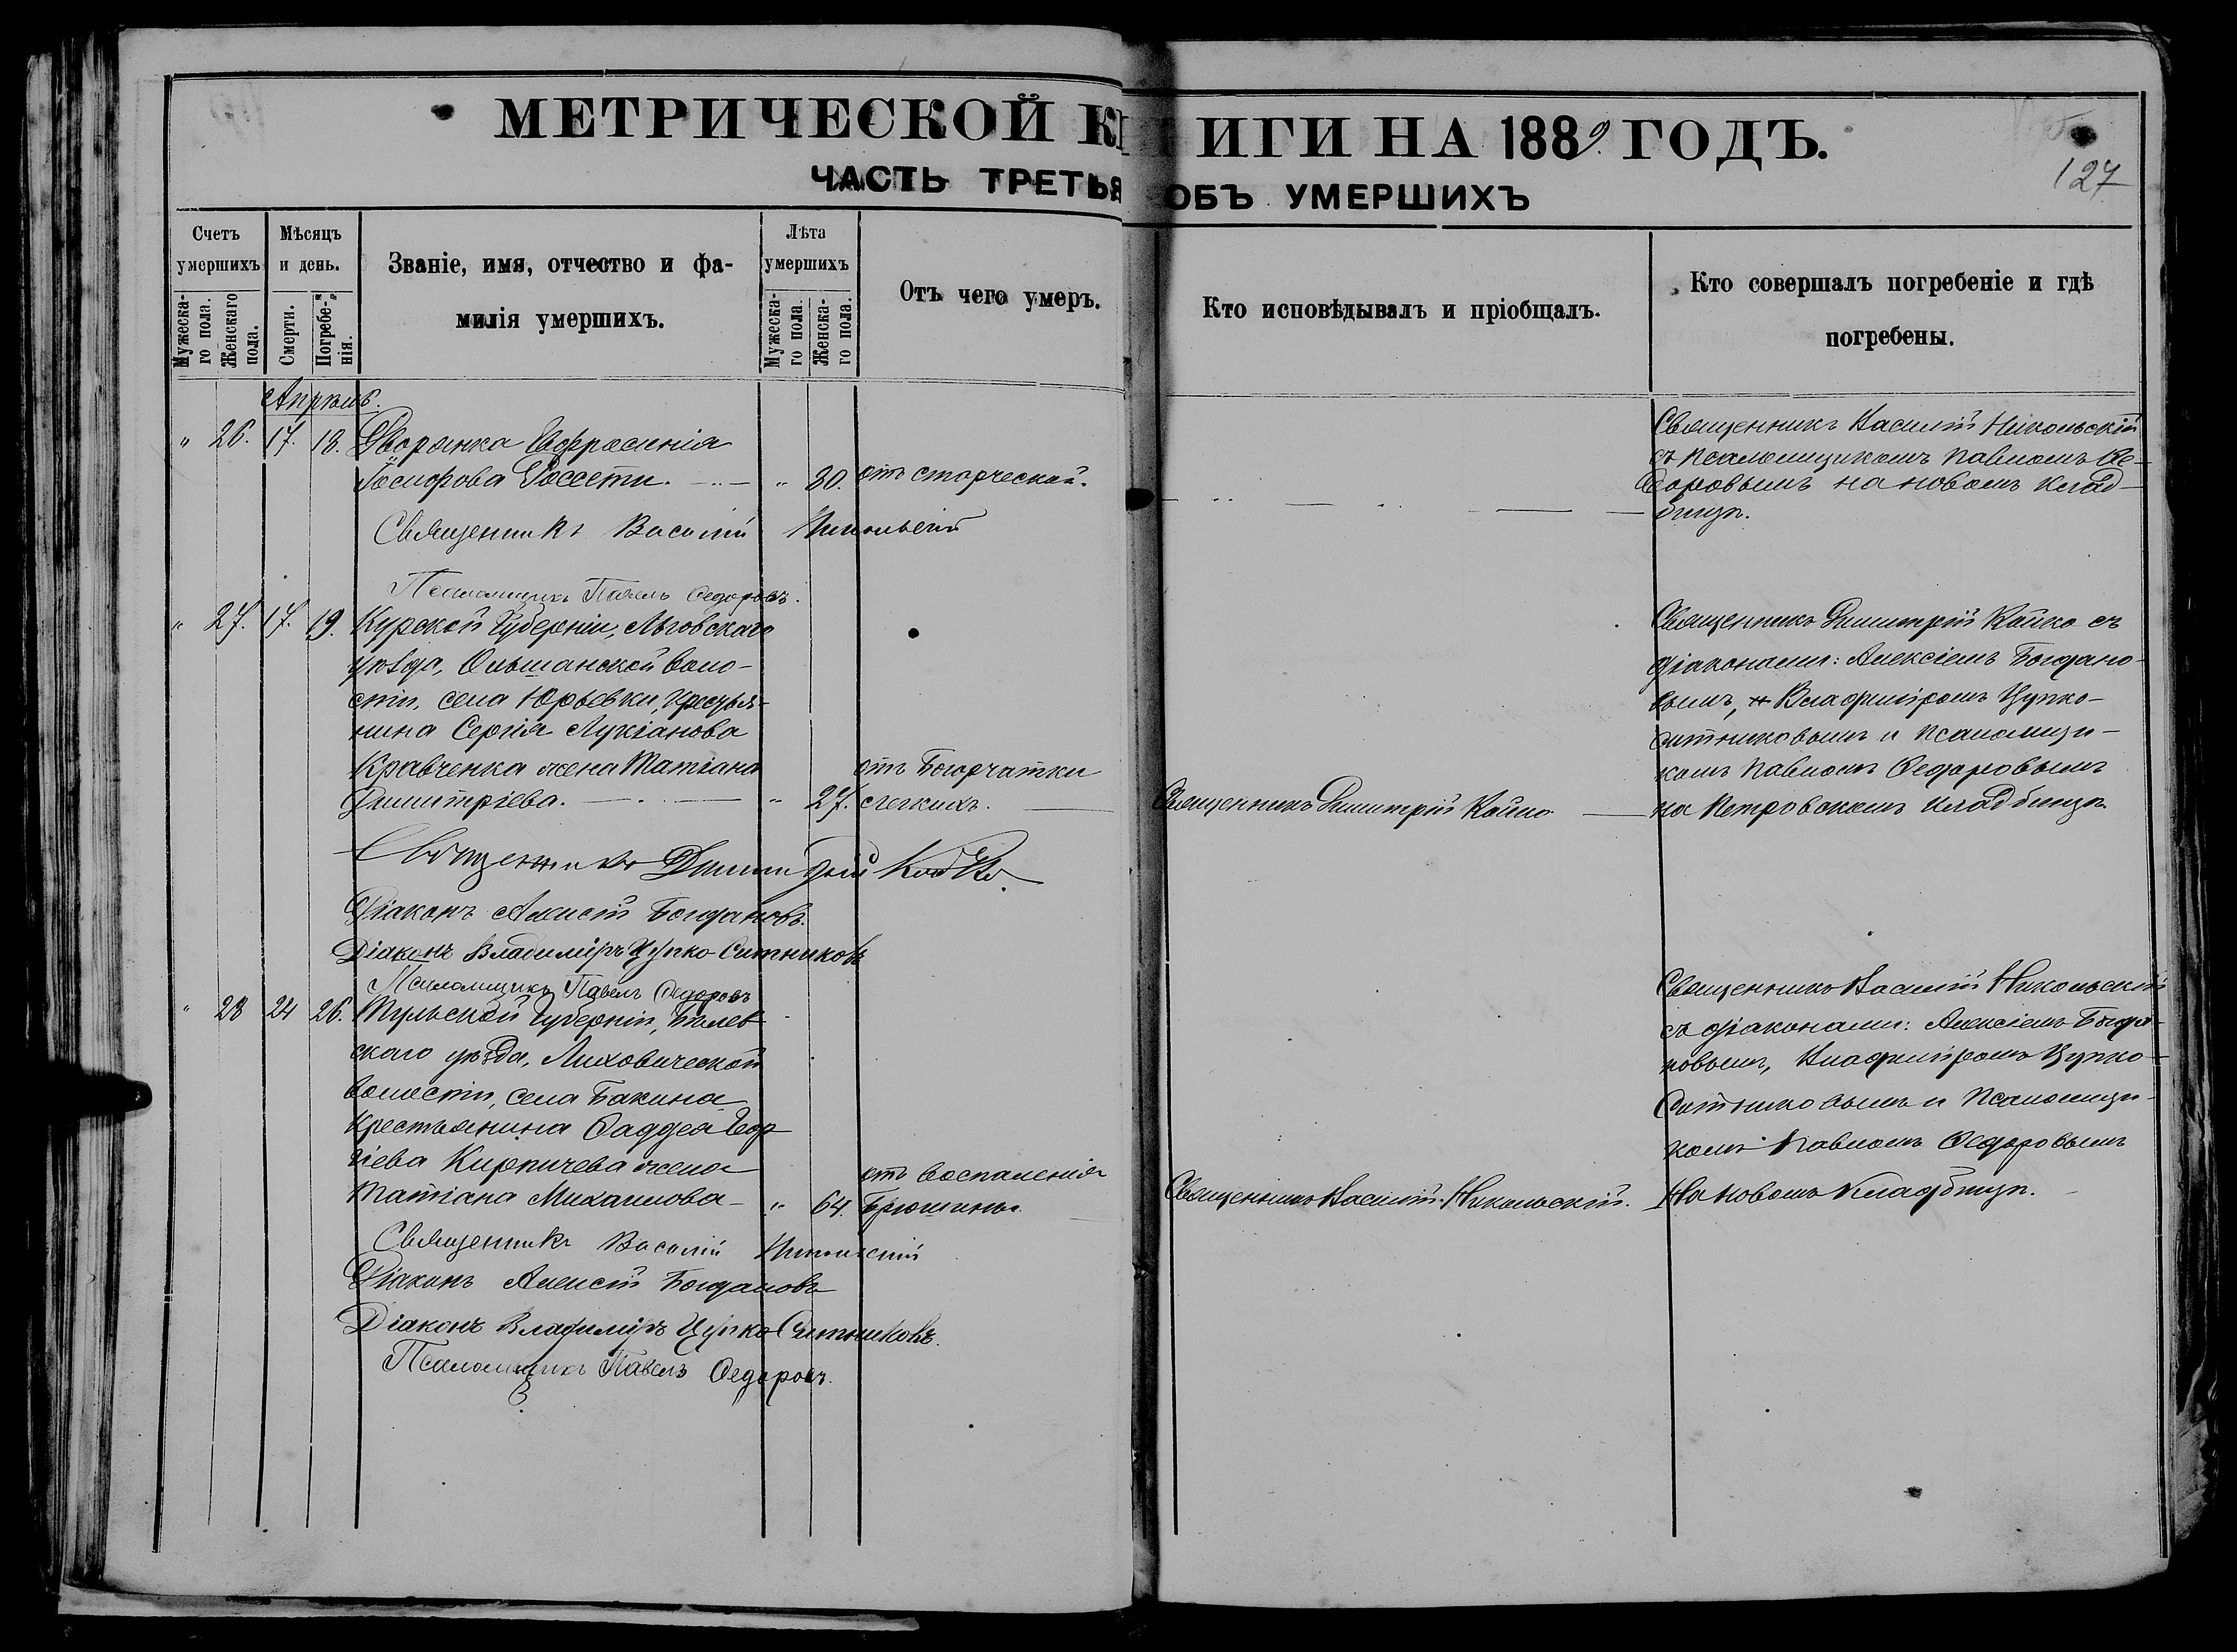 МЕТРИЧЕСКОЙ КНИГИ НА 1889 ГОДЪ.
127
ЧАСТЬ ТРЕТЬЯ ОБЪ УМЕРШИХЪ
Счетъ умершихъ
Мужеска-
го пола.
Женскаго
пола.
Мѣсяцъ и день.
Смерти.
Погребе-
нія.
Званіе, имя, отчество и фа-
милія умершихъ.
Лѣта умершихъ
Мужеска-
го пола.
Женска-
го пола.
Отъ чего умеръ.
Кто исповѣдывалъ и пріобщалъ.
Кто совершалъ погребеніе и гдѣ
погребены.
Апрѣль.
" 26. 17. 18. Дворянка Евфросинія
Іосифова Россети. " 80. отъ старческой.
Священникъ Василій Никольскій
съ псаломщикомъ Павломъ Ѳе-
доровымъ на новомъ клад-
бищѣ.
Священникъ Василій Никольскій
Псаломщикъ Павелъ Ѳедоровъ.
" 27. 17. 19. Курской Губерніи, Льговскаго
уѣзда, Ольшанской воло-
сти, села Юрьевки, крестья-
нина Сергія Лукіанова
Кравченка жена Татіана
Димитріева. " 27.
отъ Бугорчатки
легкихъ.
Священникъ Димитрій Койко
Священникъ Димитрій Койко съ
діаконами: Алексіемъ Богдано-
вымъ, Владиміромъ Цупко-
Ситниковымъ и псаломщи-
комъ Павломъ Ѳедоровымъ
на Петровскомъ кладбищѣ
Священникъ Димитрій Койко.
Діаконъ Алексій Богдановъ.
Діаконъ Владиміръ Цупко-Ситниковъ
Псаломщикъ Павелъ Ѳедоровъ
" 28 24 26. Тульской Губерніи, Бѣлев-
скаго уѣзда, Лиховической
волости, села Бакина
Крестьянина Ѳаддея Геор-
гіева Кирпичева жена
Татіана Михаилова " 64.
отъ воспаленія
Брюшины.
Священникъ Василій Никольскій.
Священникъ Василій Никольскій
съ діаконами: Алексіемъ Богда-
новымъ, Владиміромъ Цупко-
Ситниковымъ и псаломщи-
комъ Павломъ Ѳедоровымъ
На новомъ кладбищѣ.
Священникъ Василій Никольскій
Діаконъ Алексій Богдановъ
Діаконъ Владиміръ Цупко-Ситниковъ.
Псаломщикъ Павелъ Ѳедоровъ.